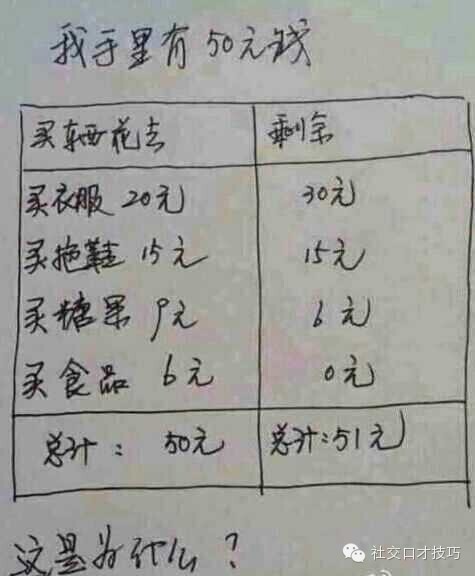 我手里有50元钱
买东西花去 剩余
买衣服 20元 30元
买拖鞋 15元 15元
买糖果 9元 6元
买食品 6元 0元
总计： 50元 总计:51元
这是为什么？
社交口才技巧